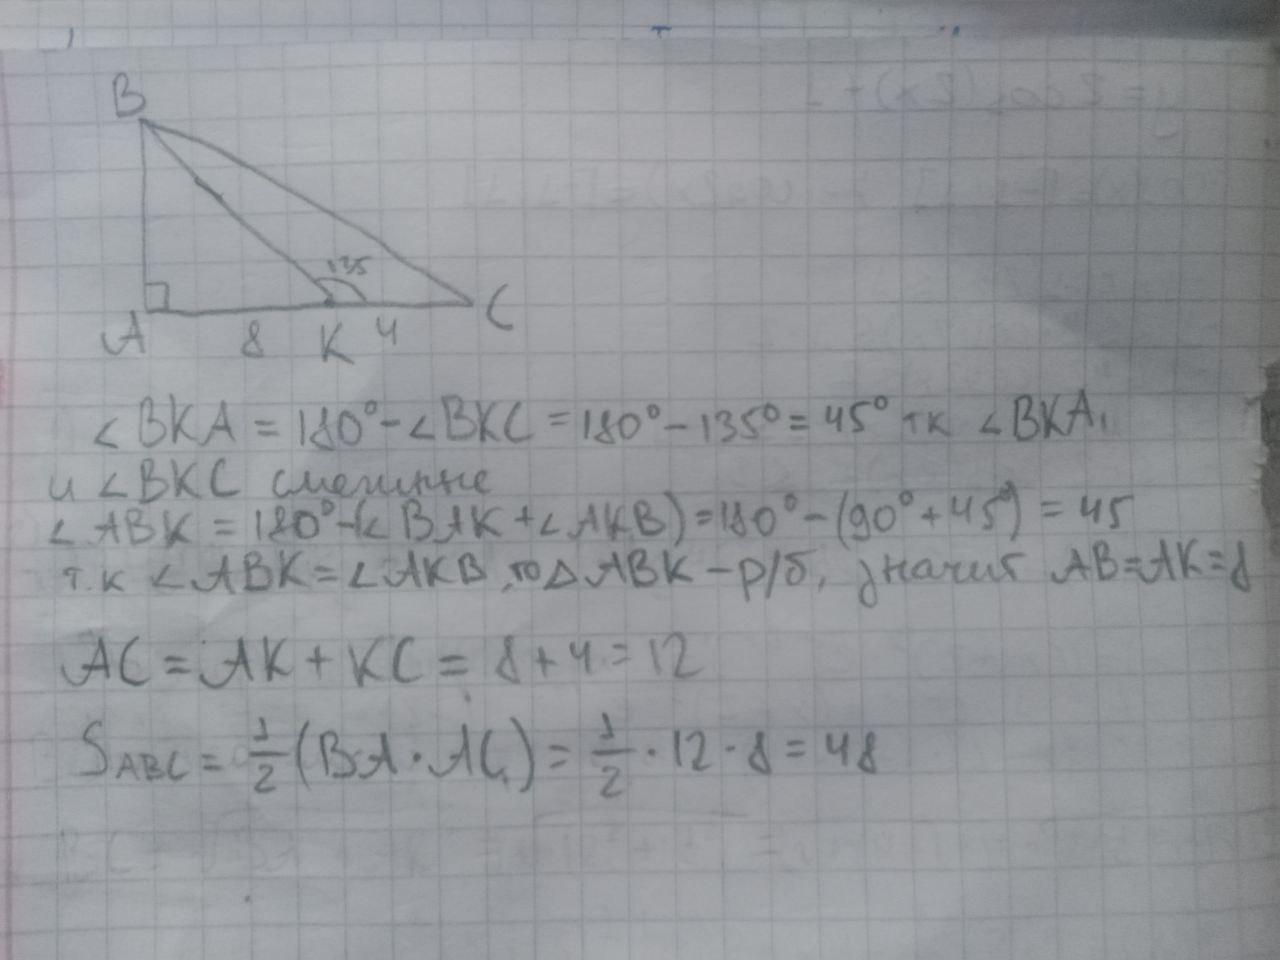 B
135
A 8 K 4 C
∠BKA = 180° - ∠BKC = 180° - 135° = 45° тк ∠BKA,
и ∠BKC смежные
∠ABK = 180° - (∠BAK + ∠AKB) = 180° - (90° + 45°) = 45
т.к ∠ABK = ∠AKB, то △ABK - р/б, значит AB = AK = 8
AC = AK + KC = 8 + 4 = 12
S_ABC = 1/2 (BA · AC) = 1/2 · 12 · 8 = 48